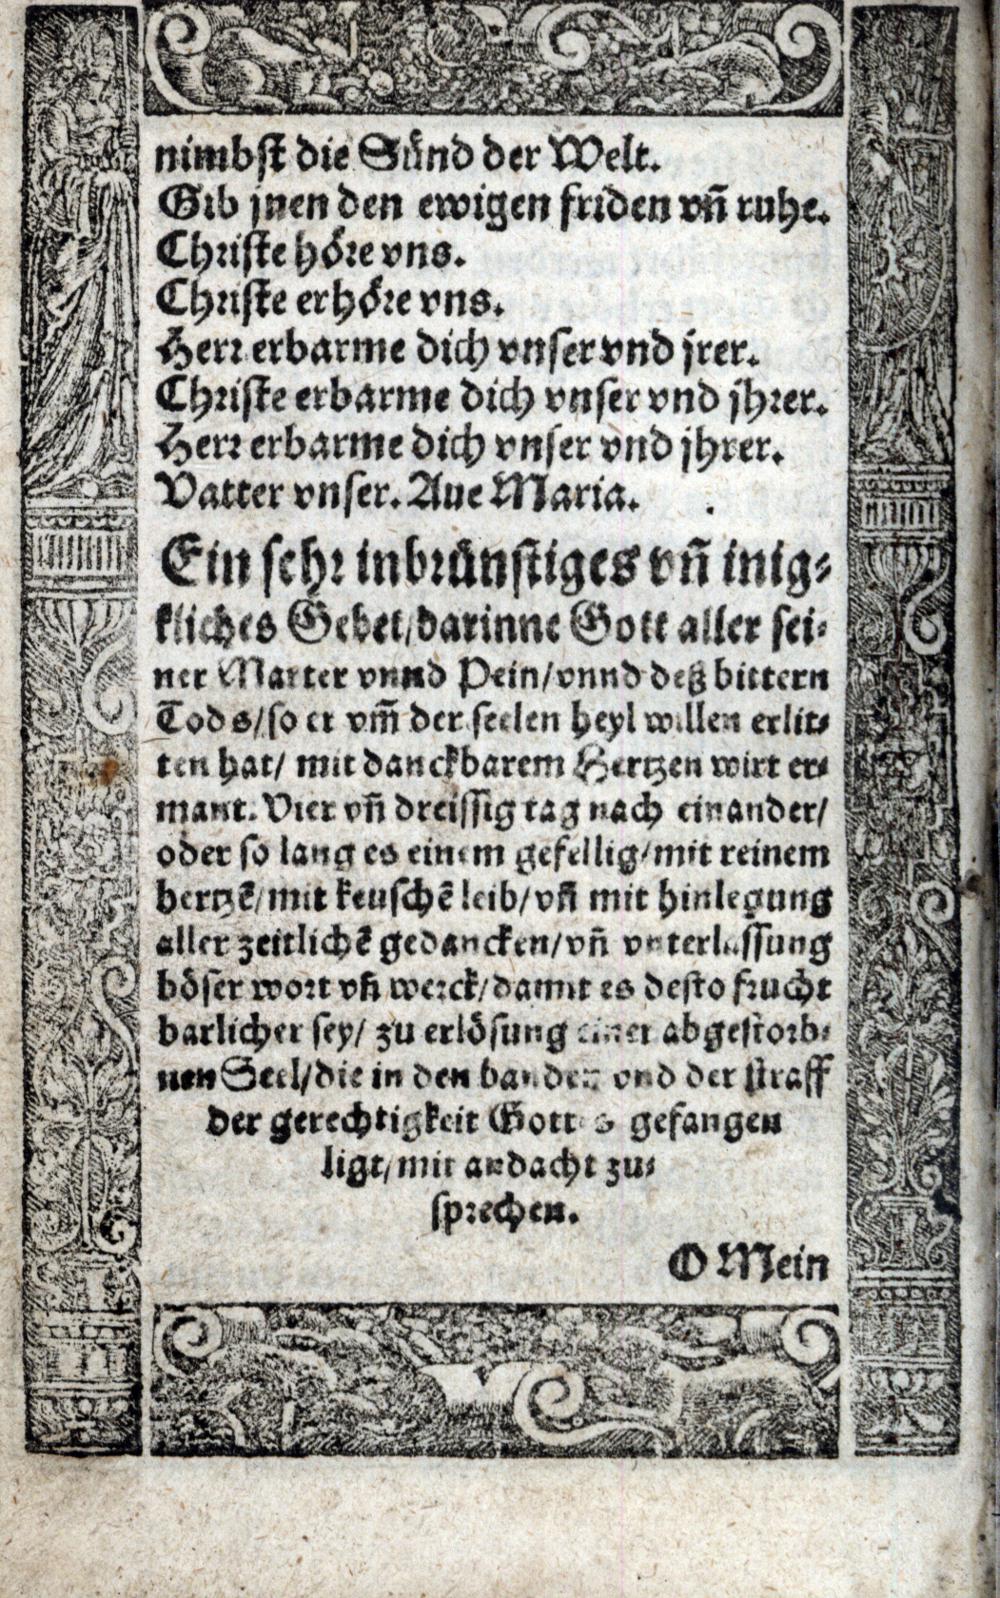 nimbst die Sünd der Welt.
Gib jnen den ewigen friden vñ ruhe.
Christe höre vns.
Christe erhöre vns.
Herr erbarme dich vnser vnd jrer.
Christe erbarme dich vnser vnd jhrer.
Herr erbarme dich vnser vnd jhrer.
Vatter vnser. Aue Maria.
Ein sehr inbrünstiges vñ inig-
kliches Gebet/darinne Gott aller sei-
ner Marter vnnd Pein/vnnd deß bittern
Tods/so er vm̃ der seelen heyl willen erlit-
ten hat/ mit danckbarem Hertzen wirt er-
mant. Vier vñ dreissig tag nach einander/
oder so lang es einem gefellig/mit reinem
hertzẽ/mit keuschẽ leib/vñ mit hinlegung
aller zeitlichẽ gedancken/vñ vnterlassung
böser wort vñ werck/damit es desto frucht
barlicher sey/ zu erlösung einer abgestorb-
nen Seel/die in den banden vnd der straff
der gerechtigkeit Gottes gefangen
ligt/mit andacht zu-
sprechen.
O Mein